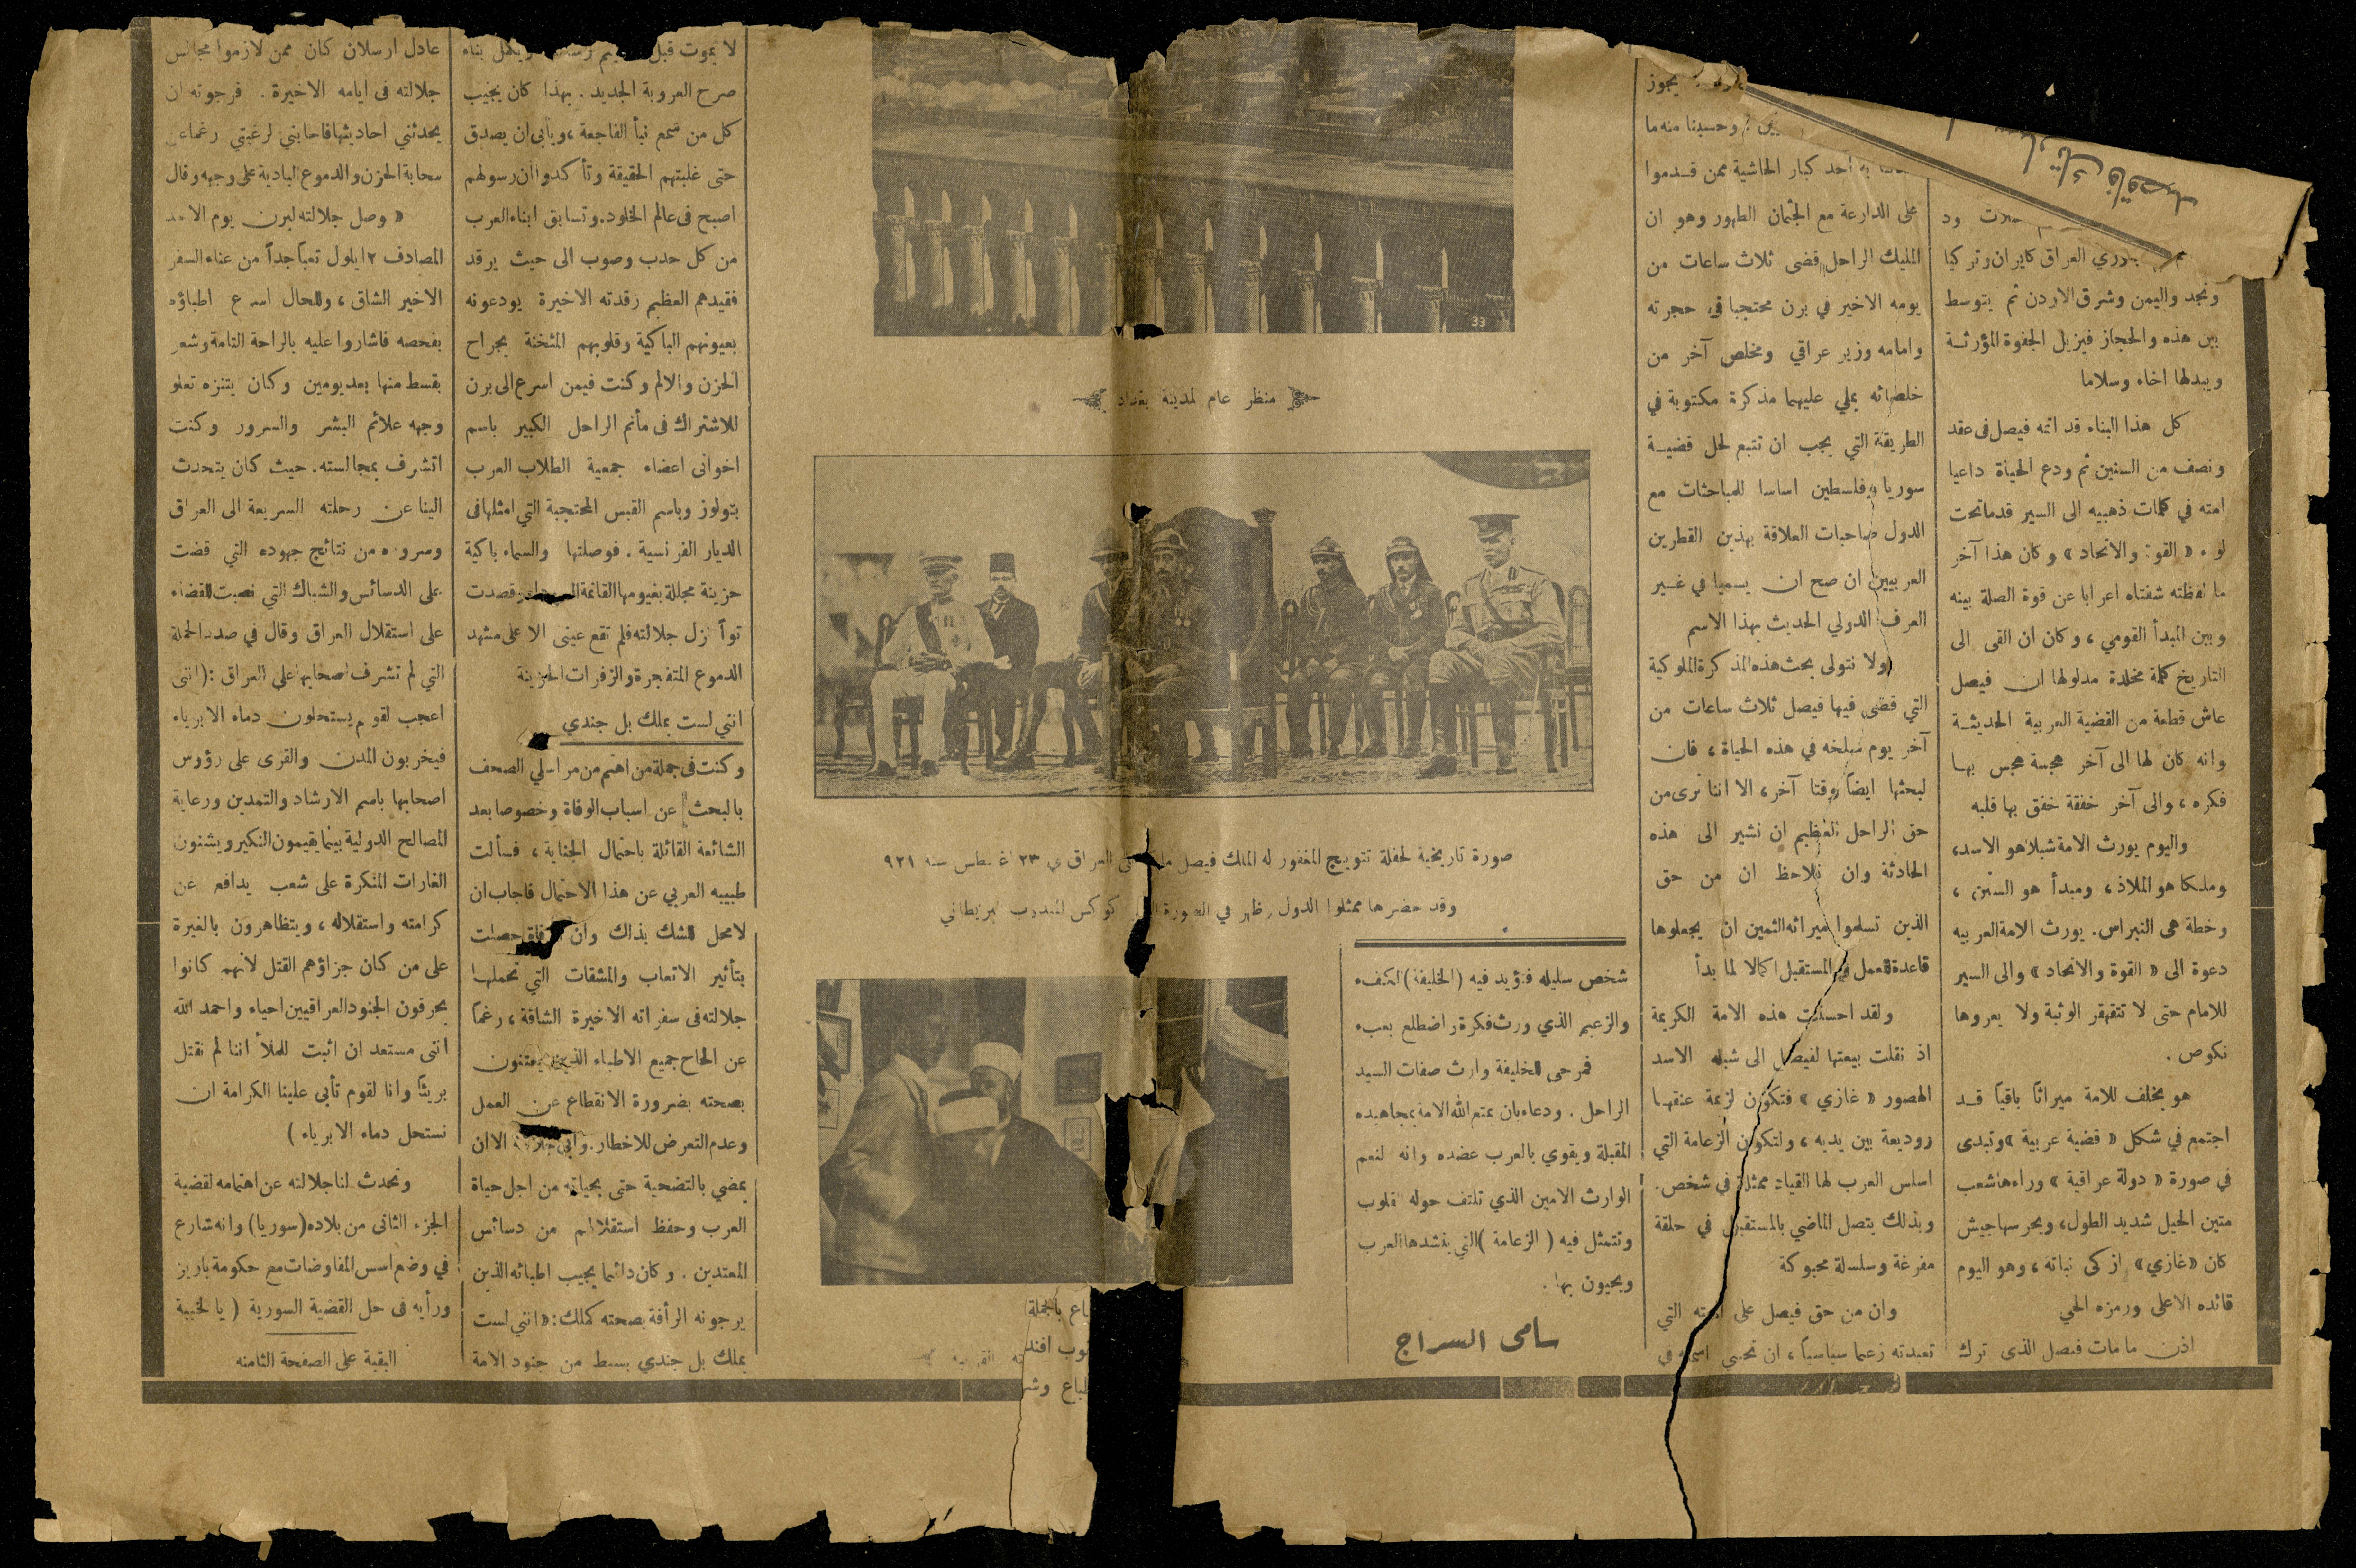 حلات ود
دوري العراق كايران وتركيا
ونجد واليمن وشرق الاردن ثم يتوسط
بين هذه والحجاز فيزيل الجفوة المؤرثـة
ويبدلها اخاء وسلاما
كل هذا البناء قد اتمه فيصل فى عقد
ونصف من السنين ثم ودع الحياة داعيا
امته في كلمات ذهبيه الى السير قدما تحت
« القوة والاتحاد » وكان هذا آخر
ما لفظته شفتاه اعرابا عن قوة الصلة بينه
وبين المبدأ القومي ، وكان ان القى الى
التاريخ كلمة مخلدة مدلولها ان فيصل
عاش قطعة من القضية العربية الحديثـة
وانه كان لها الى آخر هجسة هجس بهـا
فكره ، والى آخر خفقة خفق بها قلبه
واليوم يورث الامة شبلا هو الاسد ،
وملكا هو الملاذ ، ومبدأ هو السنن ،
وخطة هى النبراس . يورث الامة العربيه
دعوة الى « القوة والاتحاد » والى السير
للامام حتى لا تتقهقر الوثبة ولا يعروها
نكوص .
هو يخلف للامة ميراثا باقيا قـد
اجتمع في شكل « قضية عربية » وتبدى
في صورة « دولة عراقية » وراءها شعب
متين الحيل شديد الطول ، ويحرسها جيش
كان « غازي » ازكى نباته ، وهو اليوم
قائده الاعلى ورمزه الحي
اذن ما مات فيصل الذى ترك
يجوز
وحسبنا منه ما
به احد كبار الحاشية ممن قـدموا
على الدارعة مع الجثمان الطهور وهو ان
المليك الراحل قضى ثلاث ساعات من
يومه الاخير في برن محتجبا في حجرته
وامامه وزير عراقي ومخلص آخر من
خلصائه يملي عليهما مذكرة مكتوبة في
الطريقة التي يجب ان تتبع لحل قضيـة
سوريا وفلسطين اساسا للمباحثات مع
الدول صاحبات العلاقة بهذين القطرين
العربيين ان صح ان يسميا في غـير
العرف الدولي الحديث بهذا الاسم
ولا نتولى بحث هذه المذكرة الملوكية
التي قضى فيها فيصل ثلاث ساعات من
آخر يوم سلخه في هذه الحياة ، فان
لبحثها ايضا وقتا آخر ، الا اننا نرى من
حق الراحل العظيم ان نشير الى هذه
الحادثة وان نلاحظ ان من حق
الذين تسلموا ميراثه الثمين ان يجعلوها
قاعدة للعمل في المستقبل اكمالا لما بدأ
ولقد احسنت هذه الامة الكريمة
اذ نقلت بيعتها لفيصل الى شبله الاسد
الهصور « غازي » فتكون لزيمة عنقهـا
ووديعة بين يديه ، ولتكون الزعامة التي
اسلس العرب لها القياد ممثلة في شخص .
وبذلك يتصل الماضي بالمستقبل في حلقة
مفرغة وسلسلة محبوكة
وان من حق فيصل على امته التي
تعبدته زعيما سياسيا ، ان تحيي اسمه في
33
منظر عام لمدينة بغداد
صورة تاريخية لحفلة تتويج المغفور له الملك فيصل على العراق في ٢٣ اغسطس سنه ٩٢١
وقد حضرها ممثلوا الدول وظهر في الصورة كوكس المندوب البريطاني
شخص سليله فنؤيد فيه ( الخليفة ) الكفء
والزعيم الذي ورث فكرة واضطلع بعبء
فمرحى للخليفة وارث صفات السيد
الراحل . ودعاء بان يمتع الله الامة بمجاهده
المقبلة ويقوي بالعرب عضده وانه لنعم
الوارث الامين الذي تلتف حوله قلوب
وتتمثل فيه ( الزعامة ) التي ينشدها العرب
ويحيون بها .
سامى السراج
لا يموت قبل ويكمل بناء
صرح العروبة الجديد . بهذا كان يجيب
كل من سمع نبأ الفاجعة ، ويأبى ان يصدق
حتى غلبتهم الحقيقة وتأكدوا ان رسولهم
اصبح فى عالم الخلود . وتسابق ابناء العرب
من كل حدب وصوب الى حيث يرقد
فقيدهم العظيم رقدته الاخيرة يودعونه
بعيونهم الباكية وقلوبهم المثخنة بجراح
الحزن والالم وكنت فيمن اسرع الى برن
للاشتراك فى مأتم الراحل الكبير باسم
اخوانى اعضاء جمعية الطلاب العرب
بتولوز وباسم القبس المحتجبة التي امثلها فى
الديار الفرنسية . فوصلتها والسماء باكية
حزينة مجللة بغيومها القاتمة فقصدت
توآ نزل جلالته فلم تقع عينى الا على مشهد
الدموع المتفجرة والزفرات الحزينة
انني لست بملك بل جندي
وكنت فى جملة من اهتم من مراسلي الصحف
بالبحث عن اسباب الوفاة وخصوصا بعد
الشائعة القائلة باحتمال الجناية ، فسألت
طبيبه العربي عن هذا الاحتمال فاجاب ان
لامحل للشك بذاك وان الوفاة حصلت
بتأثير الاتعاب والمشقات التي تحملهـا
جلالته فى سفراته الاخيرة الشاقة ، رغماً
عن الحاح جميع الاطباء الذين يعتنون
بصحته بضرورة الانقطاع عن العمل
وعدم التعرض للاخطار . وابى جلالته الا ان
يمضي بالتضحية حتى بحياته من اجل حياة
العرب وحفظ استقلالهم من دسائس
المعتدين . وكان دائما يجيب اطبائه الذين
يرجونه الرأفة بصحته كملك : « انني لست
بملك بل جندي بسيط من جنود الامة
عادل ارسلان كان ممن لازموا مجالس
جلالته فى ايامه الاخيرة . فرجوته ان
يحدثني احاديثها فاجابني لرغبتي رغما عن
سحابة الحزن والدموع البادية على وجهه وقال
« وصل جلالته لبرن يوم الاحد
المصادف ٢ ايلول تعبا جداً من عناء السفر
الاخير الشاق ، وللحال اسرع اطباؤه
بفحصه فاشاروا عليه بالراحة التامة وشعر
بقسط منها بعد يومين وكان يتنزه تعلو
وجهه علائم البشر والسرور وكنت
اتشرف بمجالسته . حيث كان يتحدث
الينا عن رحلته السريعة الى العراق
وسروره من نتائج جهوده التي قضت
على الدسائس والشباك التي نصبت للقضاء
على استقلال العراق وقال في صدد الحملة
التي لم تشرف اصحابها على العراق : ( انني
اعجب لقوم يستحلون دماء الابرياء
فيخربون المدن والقرى على رؤوس
اصحابها باسم الارشاد والتمدين ورعاية
المصالح الدولية بينما يقيمون النكير ويشنون
الغارات المنكرة على شعب يدافع عن
كرامته واستقلاله ، ويتظاهرون بالغيرة
على من كان جزاؤهم القتل لانهم كانوا
يحرقون الجنود العراقيين احياء واحمد الله
انني مستعد ان اثبت للملأ اننا لم نقتل
بريئا وانا لقوم تأبى علينا الكرامة ان
نستحل دماء الابرياء )
وتحدث لنا جلالته عن اهتمامه لقضية
الجزء الثانى من بلاده ( سوريا ) وانه شارع
في وضع اسس المفاوضات مع حكومة باريز
ورأيه فى حل القضية السورية ( يا لخيبة
البقية على الصفحة الثامنه